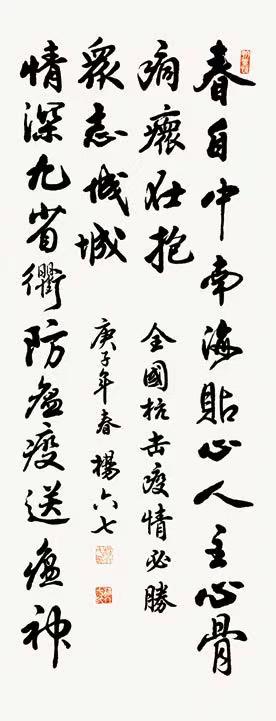 春自中南海貼心人主心骨
痌瘝在抱
情深九省衢防瘟疫送瘟神
眾志成城
全國抗击疫情必勝
庚子年春 楊六七